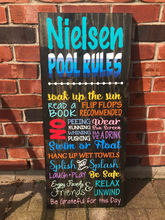 Nielsen
POOL RULES
soak up the sun
READ A BOOK FLIP FLOPS RECOMMENDED
NO PEEING RUNNING WHINING PUSHING
Wear
SUN SCREEN
Swim or Float
HANG UP WET TOWELS
Splish & Splash
LAUGH & PLAY Be Safe
Enjoy Family & Friends
RELAX
UNWIND
Be Grateful for this Day